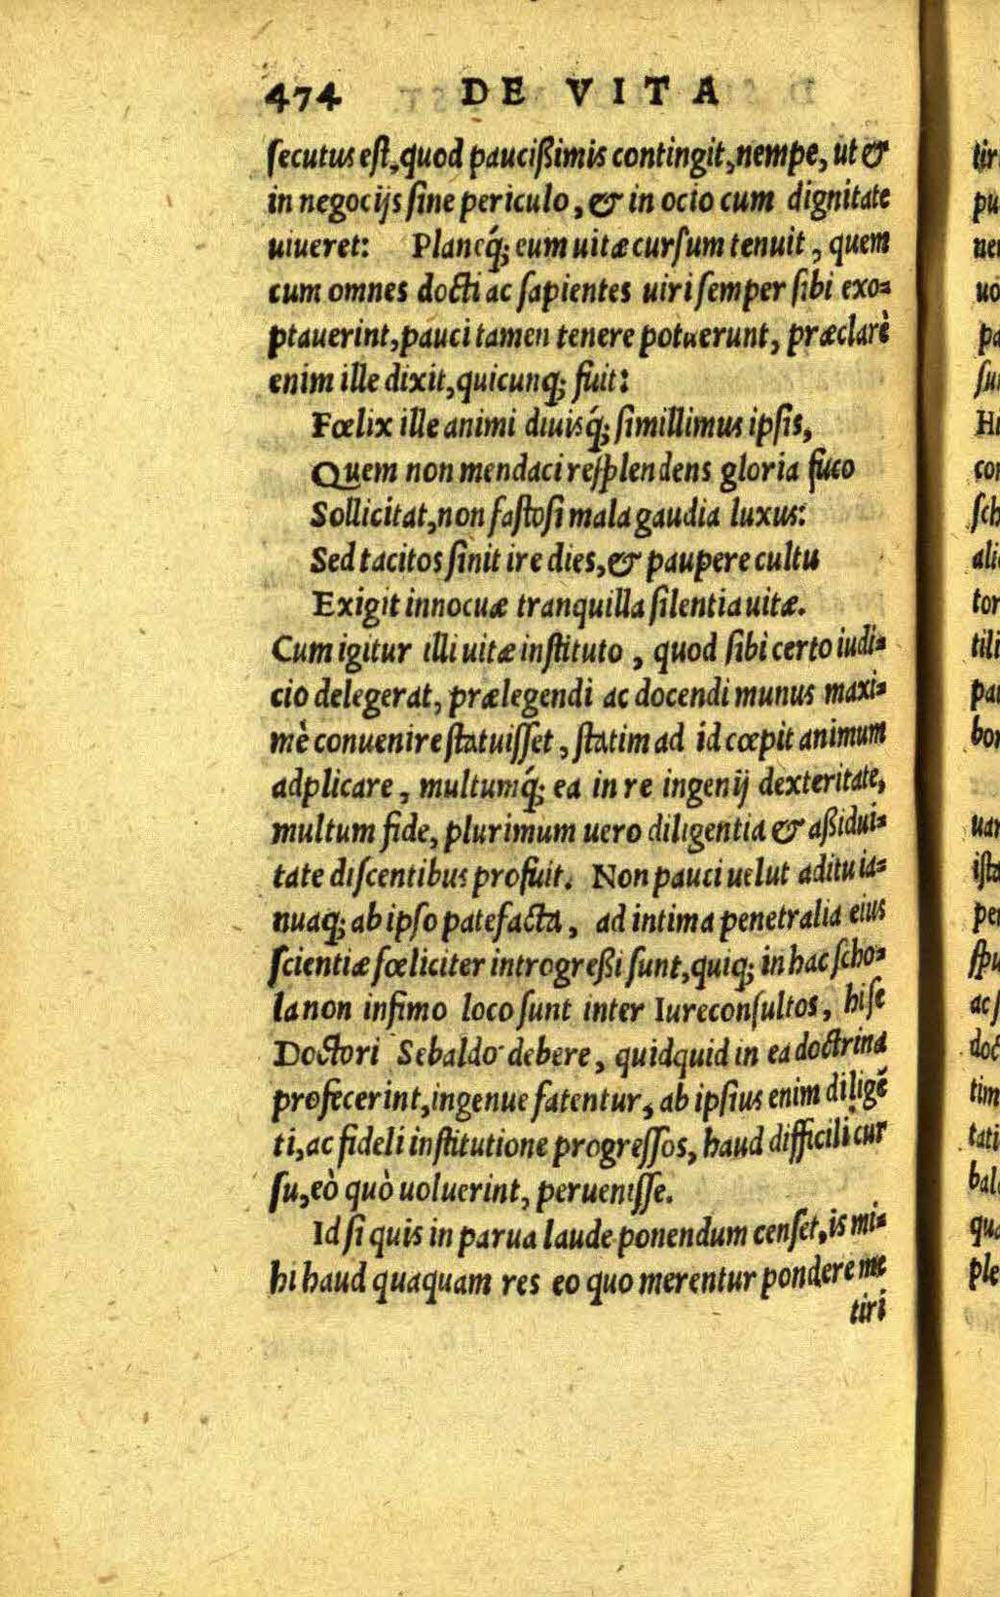 474 DE VITA
ſecutus eſt, quod pauciſſimis contingit, nempe, ut &
in negocijs ſine periculo, & in ocio cum dignitate
uiueret: Planeq́; eum uitæ curſum tenuit, quem
cum omnes docti ac ſapientes uiri ſemper ſibi exo=
ptauerint, pauci tamen tenere potuerunt, præclarè
enim ille dixit, quicunq; fuit:
Fœlix ille animi diuisq́; ſimillimus ipſis,
Quem non mendaci reſplendens gloria fuco
Sollicitat, non faſtoſi mala gaudia luxus:
Sed tacitos ſinit ire dies, & paupere cultu
Exigit innocuæ tranquilla ſilentia uitæ.
Cum igitur illi uitæ inſtituto, quod ſibi certo iudi=
cio delegerat, prælegendi ac docendi munus maxi=
mè conuenire ſtatuiſſet, ſtatim ad id cœpit animum
adplicare, multumq́; ea in re ingenij dexteritate,
multum fide, plurimum uero diligentia & aßidui=
tate diſcentibus profuit. Non pauci uelut aditu ia=
nuaq; ab ipſo patefacta, ad intima penetralia eius
ſcientiæ fœliciter introgreßi ſunt, quiq; in hac ſcho=
la non infimo loco ſunt inter Iureconſultos, hi ſe
Doctori Sebaldo debere, quidquid in ea doctrina
profecerint, ingenue fatentur, ab ipſius enim diligē
ti, ac fideli inſtitutione progreſſos, haud difficili cur
ſu, eò quò uoluerint, perueniſſe.
Id ſi quis in parua laude ponendum cenſet, is mi=
hi haud quaquam res eo quo merentur pondere me
tiri